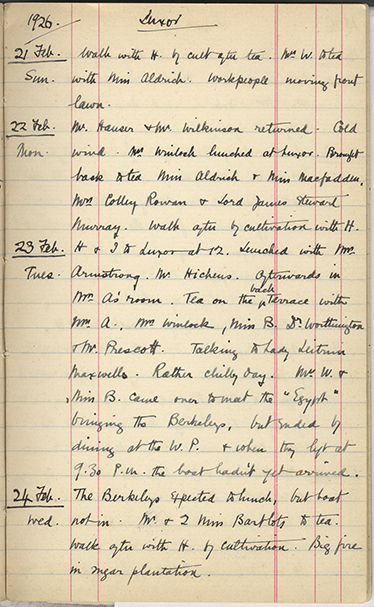 1926. Luxor
21 Feb. Walk with H. by cult after tea. Mrs W. to tea
Sun. with Miss Aldrich. Workpeople moving front
lawn.
22 Feb. Mr. Hauser & Mr. Wilkinson returned. Cold
Mon. wind. Mrs Winlock lunched at Luxor. Brought
back to tea Miss Aldrich & Miss Macfadden,
Mrs Colley Rowan & Lord James Stewart
Murray. Walk after by cultivation with H.
23 Feb. H & I to Luxor at 12. Lunched with Mrs.
Tues. Armstrong. Mr Hichens. Afterwards in
Mrs A's room. Tea on the back terrace with
Mrs A., Mrs Winlock, Miss B. Dr. Worthington
& Mr. Prescott. Talking to Lady Leitrim
Maxwells. Rather chilly day. Mrs. W. &
Miss B. Came over to meet the "Egypt"
bringing the Berkeleys, but ended by
dining at the W.P. & when they left at
9.30 P.m. the boat hadn't yet arrived.
24 Feb. The Berkeleys expected to lunch, but boat
Wed. not in. Mr. & 2 Miss Bartlots to tea.
Walk after with H. by cultivation. Big fire
in sugar plantation.